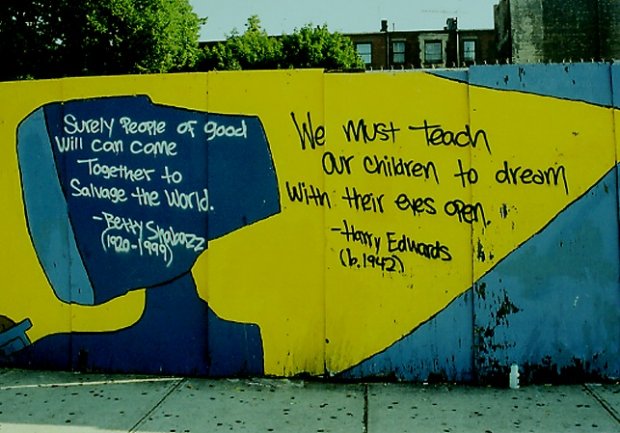 Surely People of good
Will can come
Together to
Salvage the World.
-Betty Shabazz
(1920-1999)
We must teach
Our children to dream
With their eyes open.
-Harry Edwards
(b.1942)